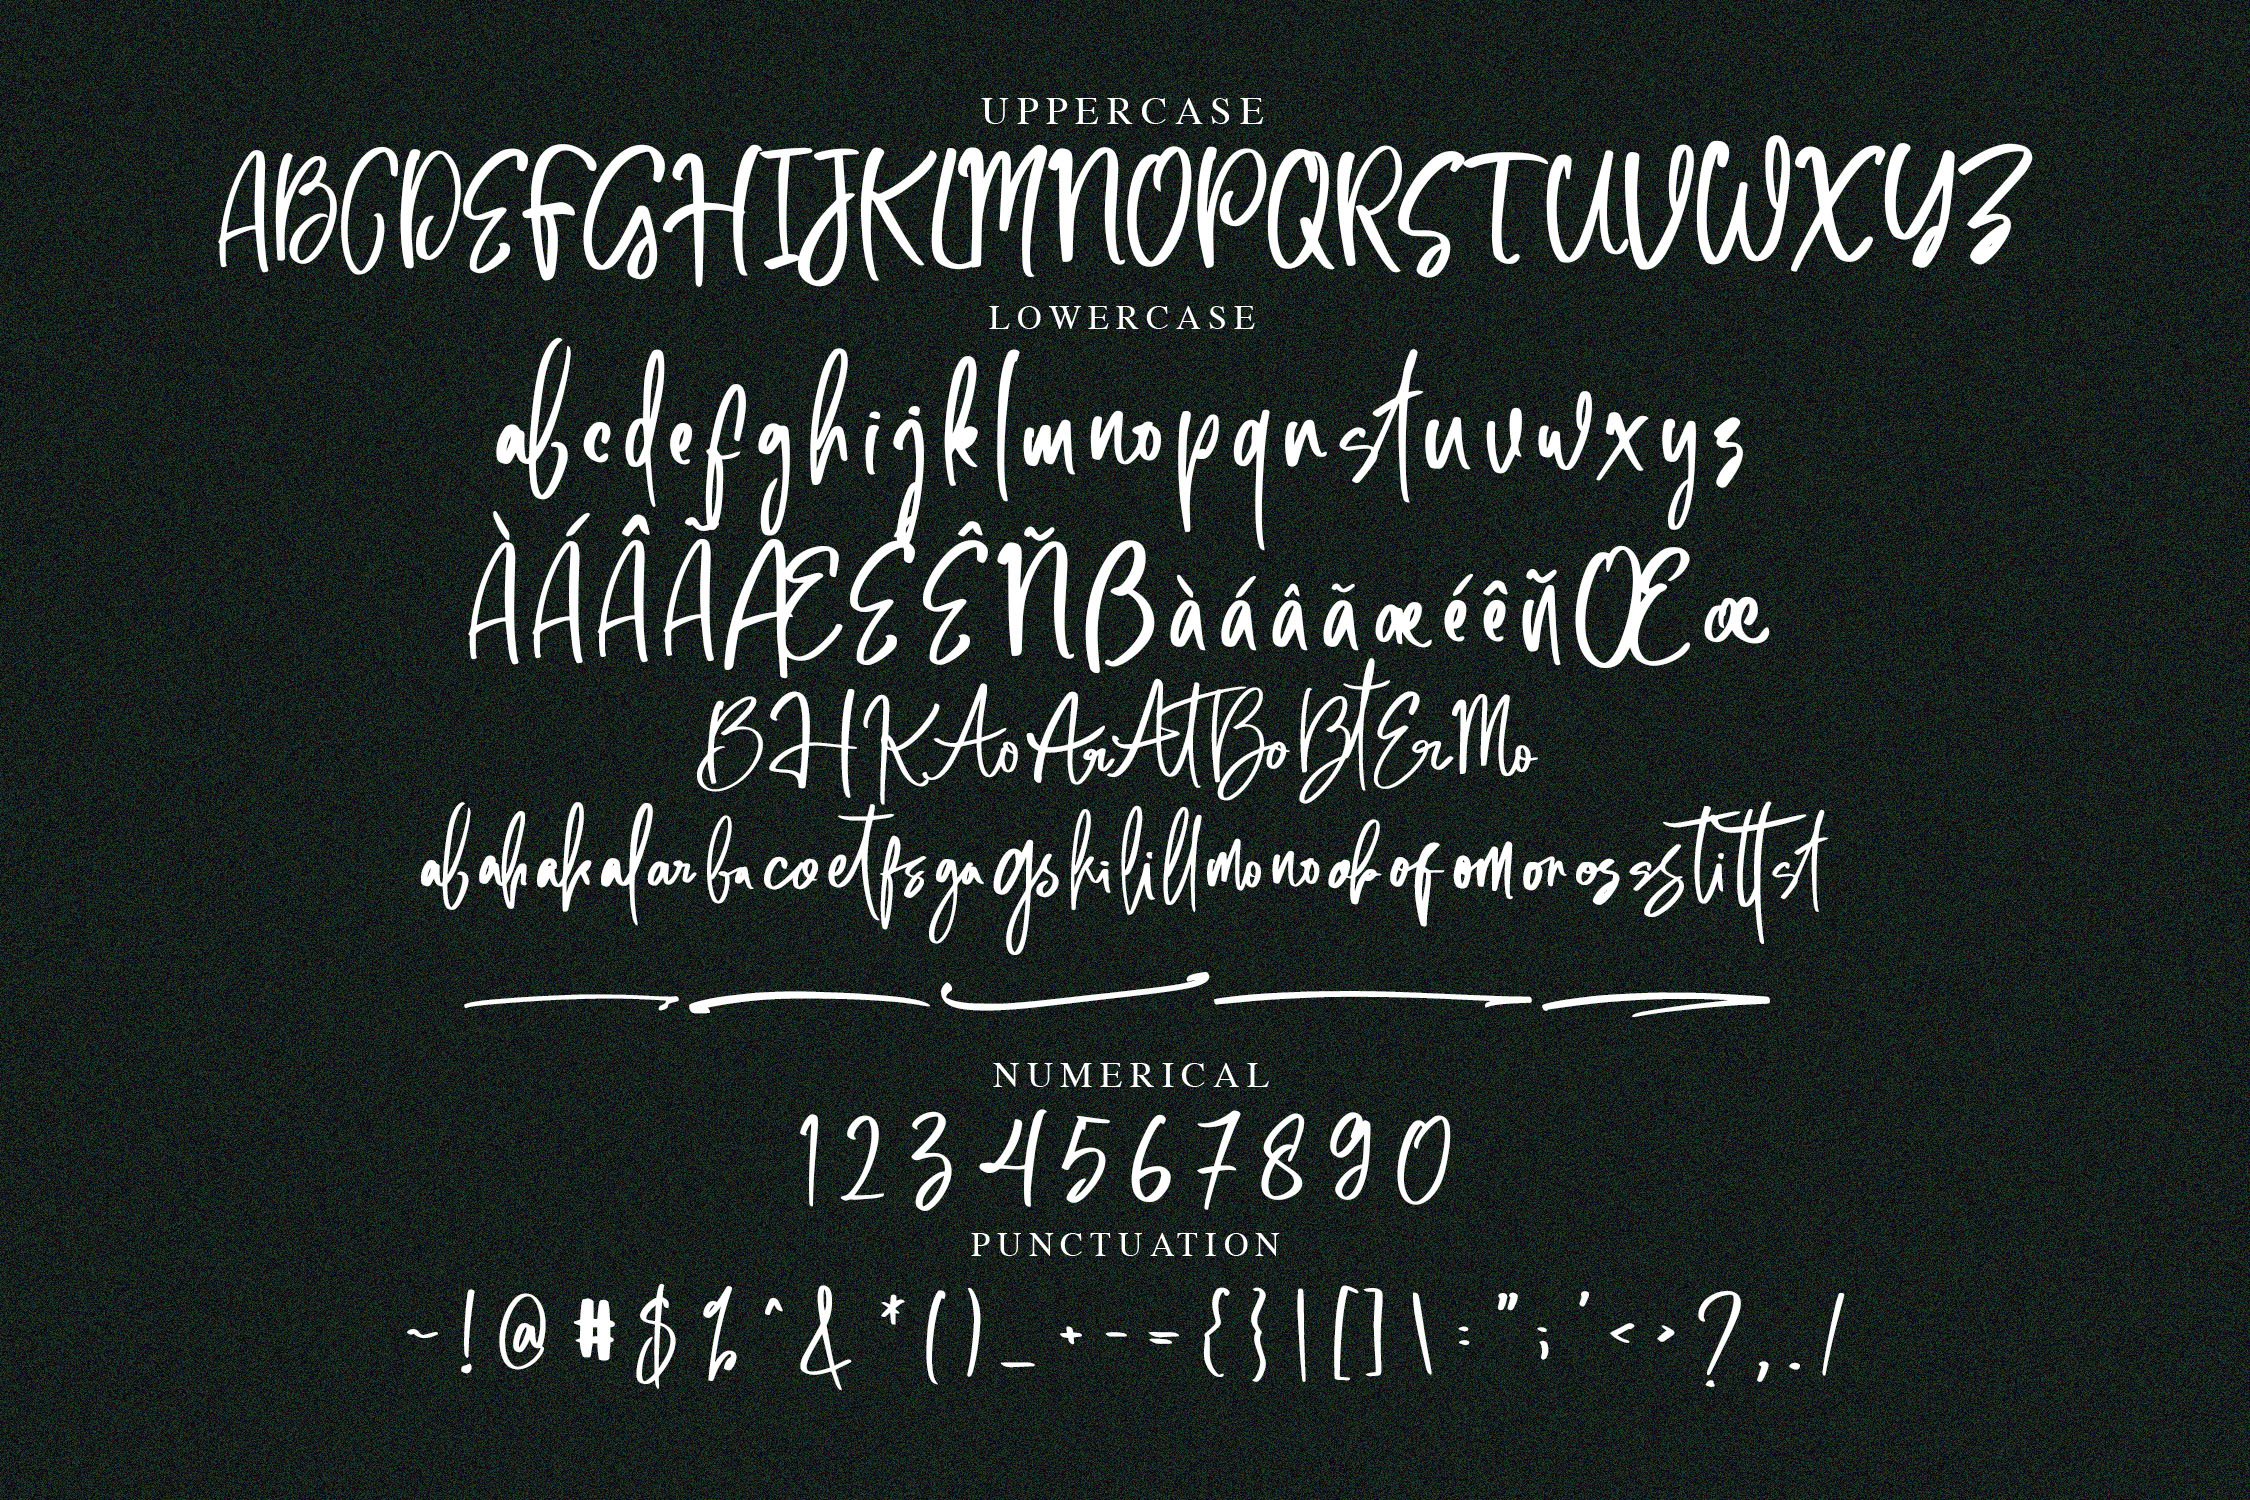 UPPERCASE
ABCDEFGHIJKLMNOPQRSTUVWXYZ
LOWERCASE
abcdefghijklmnopqrstuvwxyz
ÀÁÂÃÆÉÊÑßàáâãæéêñŒœ
BHKAoArAtBoBtErMo
abahakalarbacoetfsgagskililllmonoobofomorossstittst
NUMERICAL
1234567890
PUNCTUATION
~!@#$%^&*()_+-={}|[]\:";'<>?,./